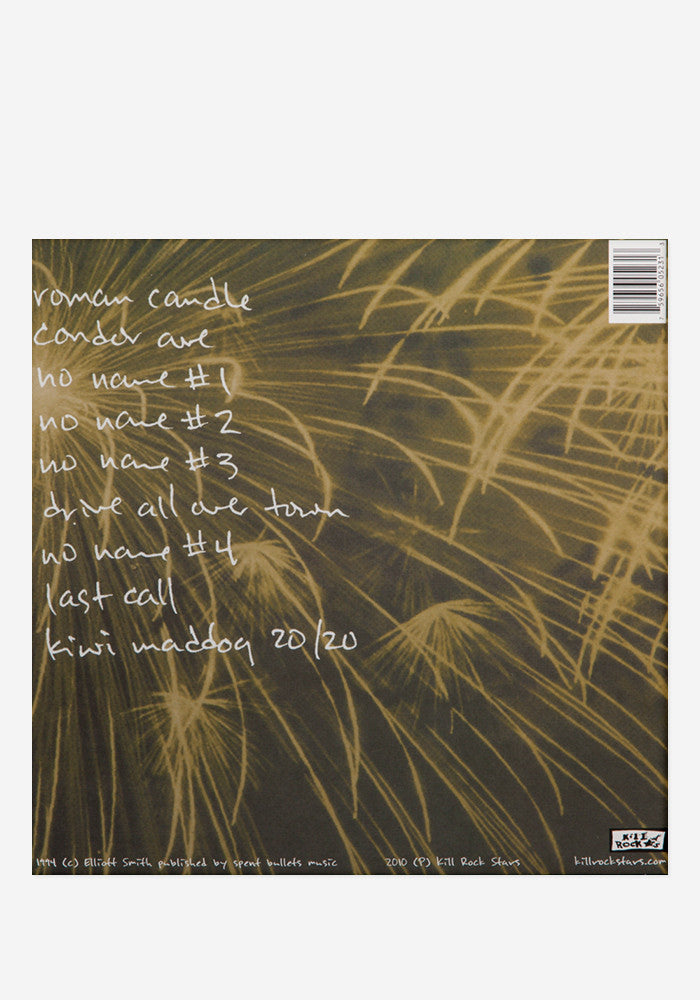 roman candle
condor ave
no name #1
no name #2
no name #3
drive all over town
no name #4
last call
kiwi maddog 20/20
7 59656 05231 3
KiLL
ROCK
1994 (c) Elliott Smith published by spent bullets music
2010 (P) Kill Rock Stars
killrockstars.com